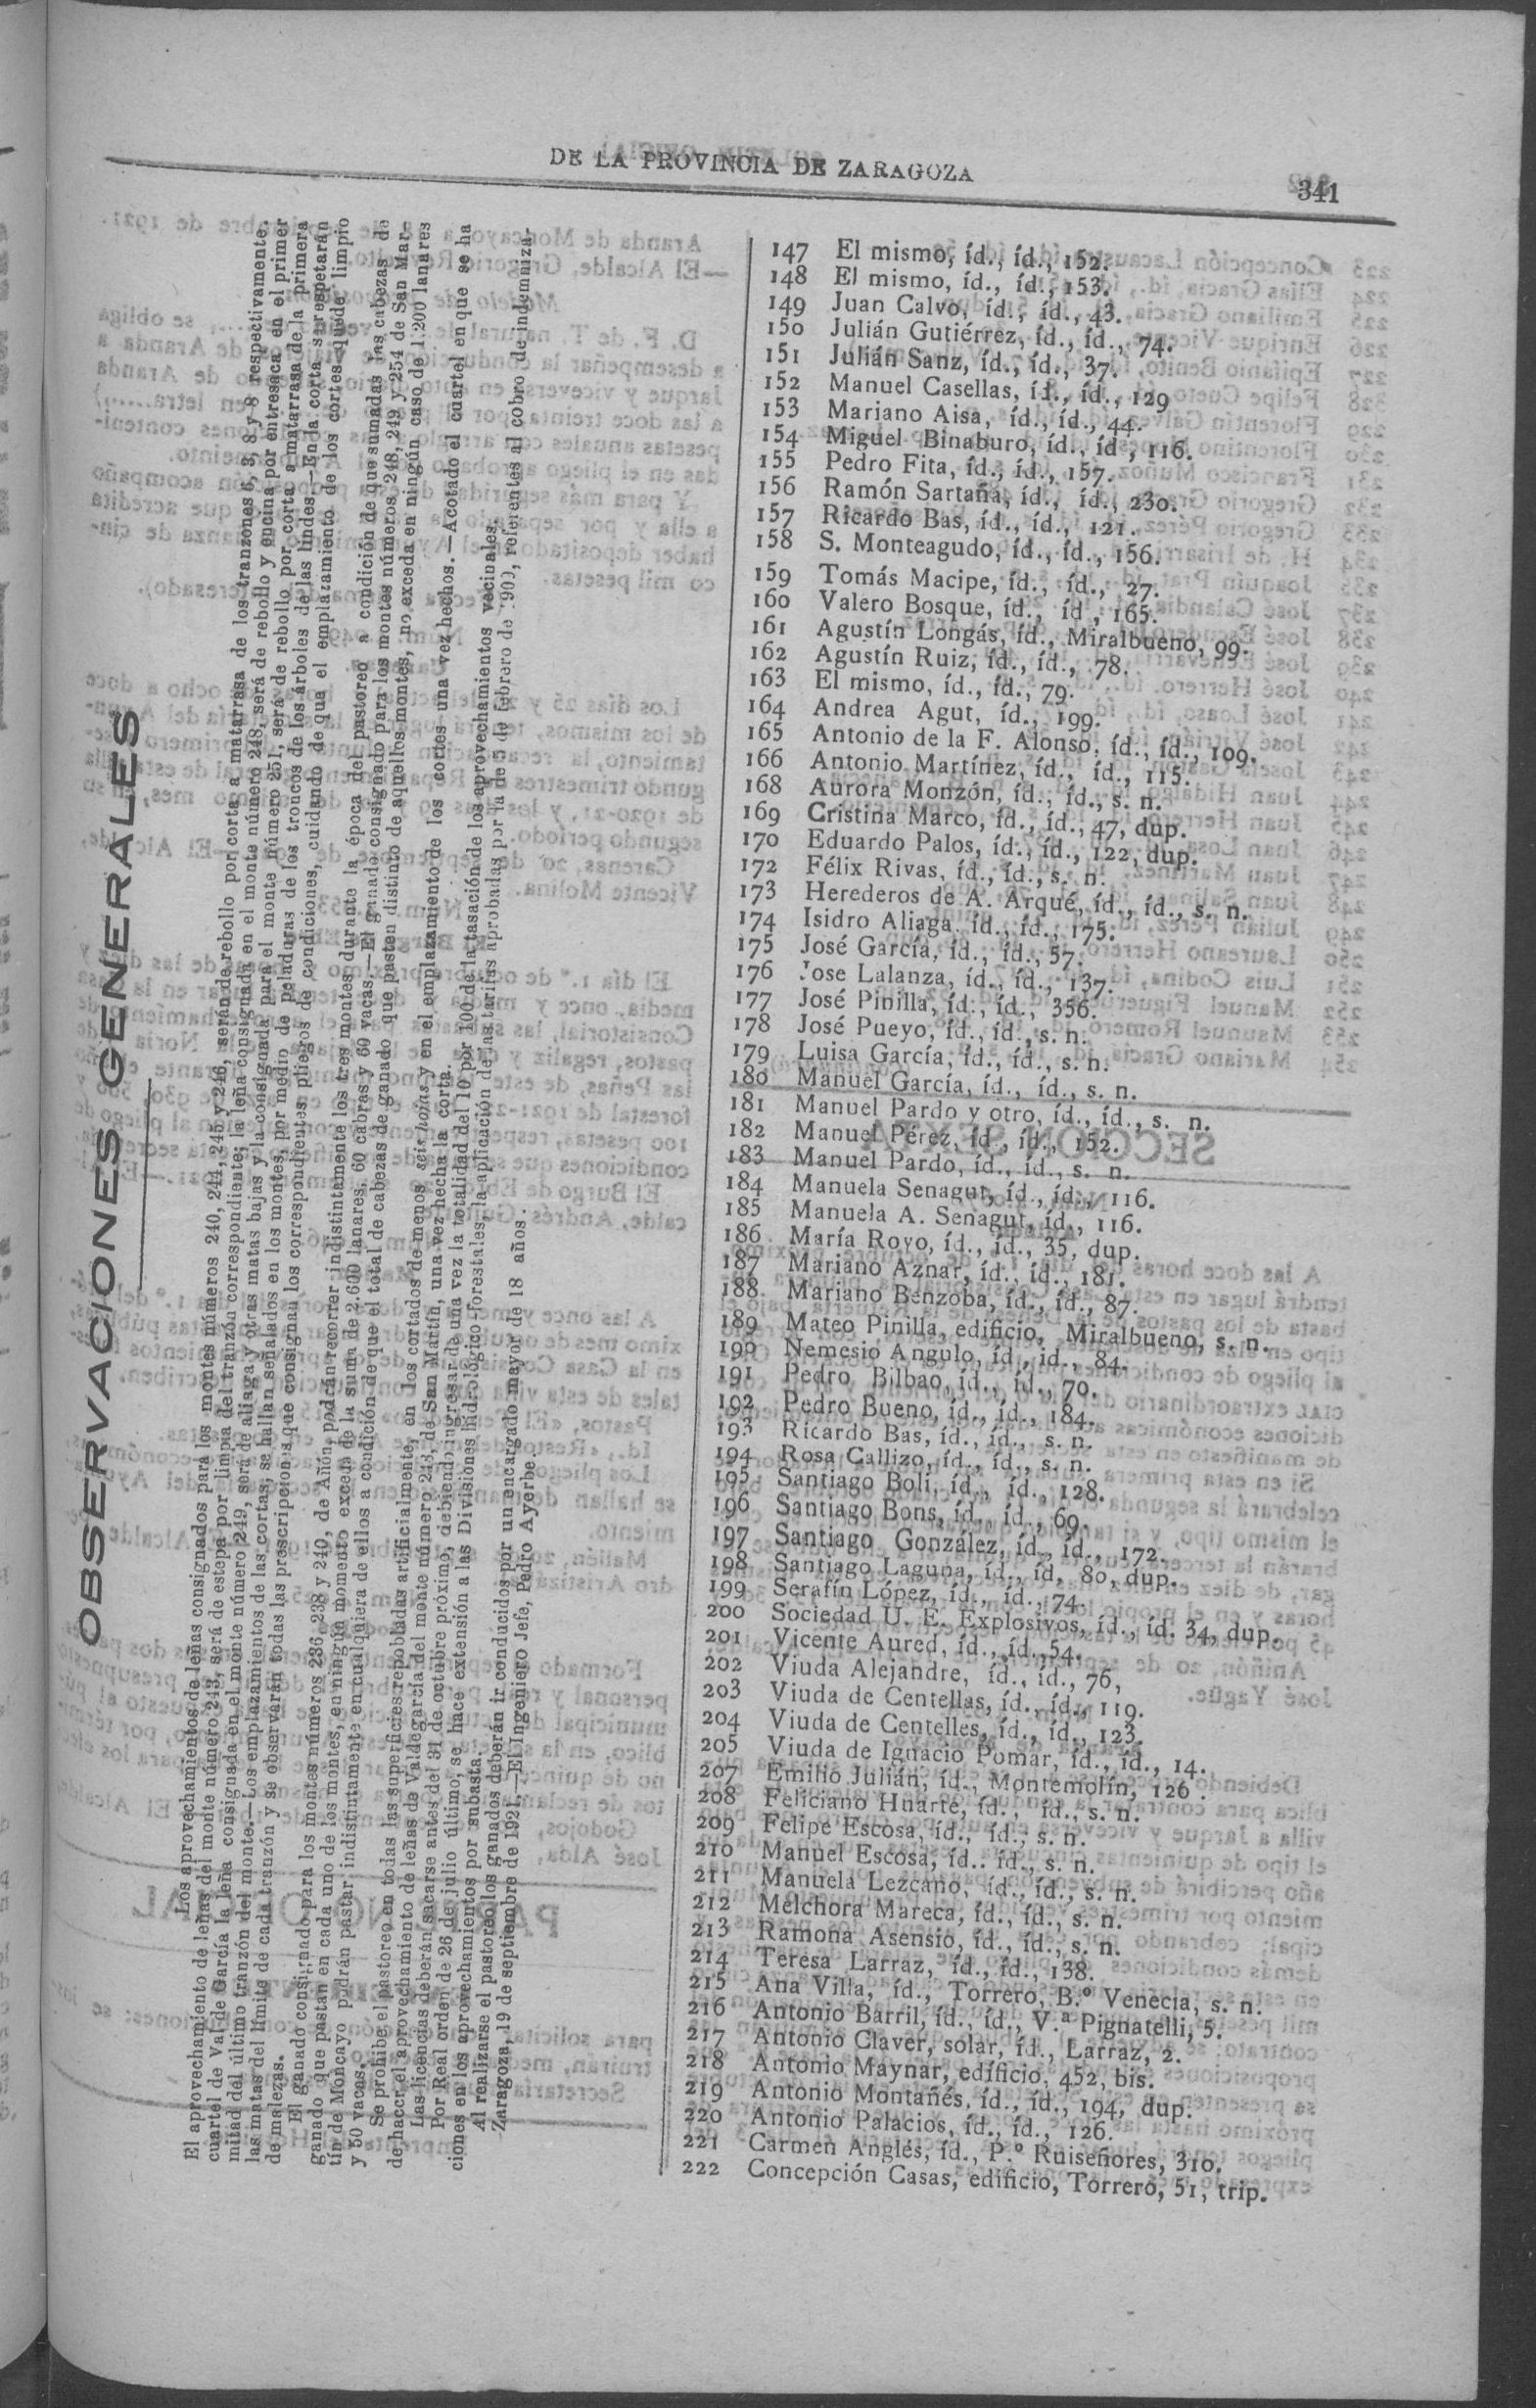 DE LA PROVINCIA DE ZARAGOZA
341
OBSERVACIONES GENERALES
Los aprovechamientos de leñas consignados para los montes números 240, 244, 245 y 246, serán de rebollo por corta a matarrasa de los tranzones 6, 3, 8 y 8 respectivamente.
El aprovechamiento de leñas del monte número 242, será de estepa por limpia del tranzón correspondiente; la leña consignada en el monte número 248, será de rebollo y encina por entresaca en el primer
cuartel de Val de García la leña consignada en el monte número 249, será de aliaga y otras matas bajas y la consignada para el monte número 251, será de rebollo por corta a matarrasa de la primera
mitad del último tranzón del monte.—Los emplazamientos de las cortas, se hallan señalados en los montes, por medio de peladuras de los troncos de los árboles de las lindes.—En la corta se respetarán
las matas del límite de cada tranzón y se observarán todas las prescripciones que consignan los correspondientes pliegos de condiciones, cuidando de que el emplazamiento de los cortes quede limpio
de malezas.
El ganado consignado para los montes números 236, 238 y 240, de Añón, podrán recorrer indistintamente los tres montes durante la época del pastoreo a condición de que sumadas las cabezas de
ganado que pastan en cada uno de los montes, en ningún momento exceda de la suma de 2.600 lanares, 60 cabras y 60 vacas.—El ganado consignado para los montes números 248, 249 y 254 de San Mar-
tín de Moncayo podrán pastar indistintamente en cualquiera de ellos a condición de que el total de cabezas de ganado que pasten distinto de aquellos montes, no exceda en ningún caso de 1.200 lanares
y 50 vacas.
Se prohibe el pastoreo en todas las superficies repobladas artificialmente, en los cortados de menos seis hojas y en el emplazamiento de los cortes una vez hechos.—Acotado el cuartel en que se ha
de hacer el aprovechamiento de leñas de Valdegarcía del monte número 243, de San Martín, una vez hecha la corta.
Las licencias deberán sacarse antes del 31 de octubre próximo, debiendo ingresar de una vez la totalidad del 10 por 100 de la tasación de los aprovechamientos vecinales.
Por Real orden de 26 de julio último, se hace extensión a las Divisiones hidrológico-forestales, la aplicación de las tarifas aprobadas por la de 5 de febrero de 1909, referentes al cobro de indemniza-
ciones en los aprovechamientos por subasta.
Al realizarse el pastoreo, los ganados deberán ir conducidos por un encargado mayor de 18 años.
Zaragoza, 19 de septiembre de 1921.—El Ingeniero Jefe, Pedro Ayerbe.
147 El mismo, íd., íd., 152.
148 El mismo, íd., íd., 153.
149 Juan Calvo, íd., íd., 43.
150 Julián Gutiérrez, íd., íd., 74.
151 Julián Sanz, íd., íd., 37.
152 Manuel Casellas, íd., íd., 129
153 Mariano Aisa, íd., íd., 44.
154 Miguel Binaburo, íd., íd., 116.
155 Pedro Fita, íd., íd., 157.
156 Ramón Sartaña, íd., íd., 230.
157 Ricardo Bas, íd., íd., 121.
158 S. Monteagudo, íd., íd., 156.
159 Tomás Macipe, íd., íd., 27.
160 Valero Bosque, íd., íd., 165.
161 Agustín Longás, íd., Miralbueno, 99.
162 Agustín Ruiz, íd., íd., 78.
163 El mismo, íd., íd., 79.
164 Andrea Agut, íd., 199.
165 Antonio de la F. Alonso, íd., íd., 109.
166 Antonio Martínez, íd., íd., 115.
168 Aurora Monzón, íd., íd., s. n.
169 Cristina Marco, íd., íd., 47, dup.
170 Eduardo Palos, íd., íd., 122, dup.
172 Félix Rivas, íd., íd., s. n.
173 Herederos de A. Arqué, íd., íd., s. n.
174 Isidro Aliaga, íd., íd., 175.
175 José García, íd., íd., 57.
176 Jose Lalanza, íd., íd., 137.
177 José Pinilla, íd., íd., 356.
178 José Pueyo, íd., íd., s. n.
179 Luisa García, íd., íd., s. n.
180 Manuel García, íd., íd., s. n.
181 Manuel Pardo y otro, íd., íd., s. n.
182 Manuel Pérez, íd., íd., 152.
183 Manuel Pardo, íd., íd., s. n.
184 Manuela Senagut, íd., íd., 116.
185 Manuela A. Senagut, íd., 116.
186 María Royo, íd., íd., 35, dup.
187 Mariano Aznar, íd., íd., 181.
188 Mariano Benzoba, íd., íd., 87.
189 Mateo Pinilla, edificio, Miralbueno, s. n.
190 Nemesio Angulo, íd., íd., 84.
191 Pedro Bilbao, íd., íd., 70.
192 Pedro Bueno, íd., íd., 184.
193 Ricardo Bas, íd., íd., s. n.
194 Rosa Callizo, íd., íd., s. n.
195 Santiago Boli, íd., íd., 128.
196 Santiago Bons, íd., íd., 69.
197 Santiago González, íd., íd., 172.
198 Santiago Laguna, íd., íd, 80, dup.
199 Serafín López, íd., íd., 74.
200 Sociedad U. E. Explosivos, íd., íd. 34, dup.
201 Vicente Aured, íd., íd., 54.
202 Viuda Alejandre, íd., íd., 76,
203 Viuda de Centellas, íd., íd., 119.
204 Viuda de Centelles, íd., íd., 123.
205 Viuda de Ignacio Pomar, íd., íd., 14.
207 Emilio Julián, íd., Montemolín, 126.
208 Feliciano Huarte, íd., íd., s. n.
209 Felipe Escosa, íd., íd., s. n.
210 Manuel Escosa, íd.. íd., s. n.
211 Manuela Lezcano, íd., íd., s. n.
212 Melchora Mareca, íd., íd., s. n.
213 Ramona Asensio, íd., íd., s. n.
214 Teresa Larraz, íd., íd., 138.
215 Ana Villa, íd., Torrero, B.º Venecia, s. n.
216 Antonio Barril, íd., íd., V.ª Pignatelli, 5.
217 Antonio Claver, solar, íd., Larraz, 2.
218 Antonio Maynar, edificio, 452, bis.
219 Antonio Montañés, íd., íd., 194, dup.
220 Antonio Palacios, íd., íd., 126.
221 Carmen Anglés, íd., P.º Ruiseñores, 310.
222 Concepción Casas, edificio, Torrero, 51, trip.